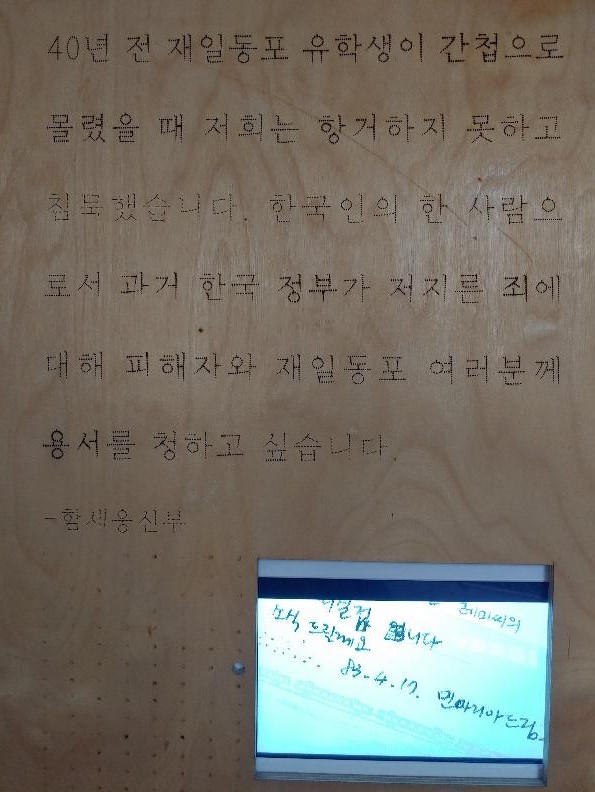 40년 전 재일동포 유학생이 간첩으로
몰렸을 때 저희는 항거하지 못하고
침묵했습니다. 한국인의 한 사람으
로서 과거 한국 정부가 저지른 죄에
대해 피해자와 재일동포 여러분께
용서를 청하고 싶습니다
-함세웅 신부
소식 드릴께요
83.4.17. 민마리아드림